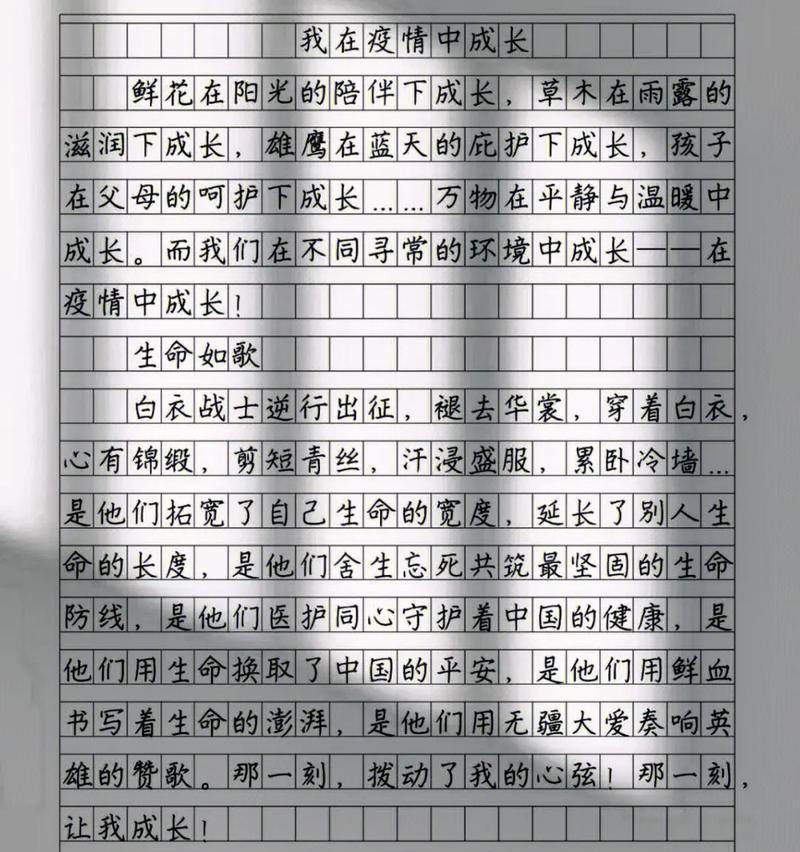 我在疫情中成长
鲜花在阳光的陪伴下成长，草木在雨露的
滋润下成长，雄鹰在蓝天的庇护下成长，孩子
在父母的呵护下成长……万物在平静与温暖中
成长。而我们在不同寻常的环境中成长——在
疫情中成长！
生命如歌
白衣战士逆行出征，褪去华裳，穿着白衣，
心有锦缎，剪短青丝，汗浸盛服，累卧冷墙…
是他们拓宽了自己生命的宽度，延长了别人生
命的长度，是他们舍生忘死共筑最坚固的生命
防线，是他们医护同心守护着中国的健康，是
他们用生命换取了中国的平安，是他们用鲜血
书写着生命的澎湃，是他们用无疆大爱奏响英
雄的赞歌。那一刻，拨动了我的心弦！那一刻，
让我成长！